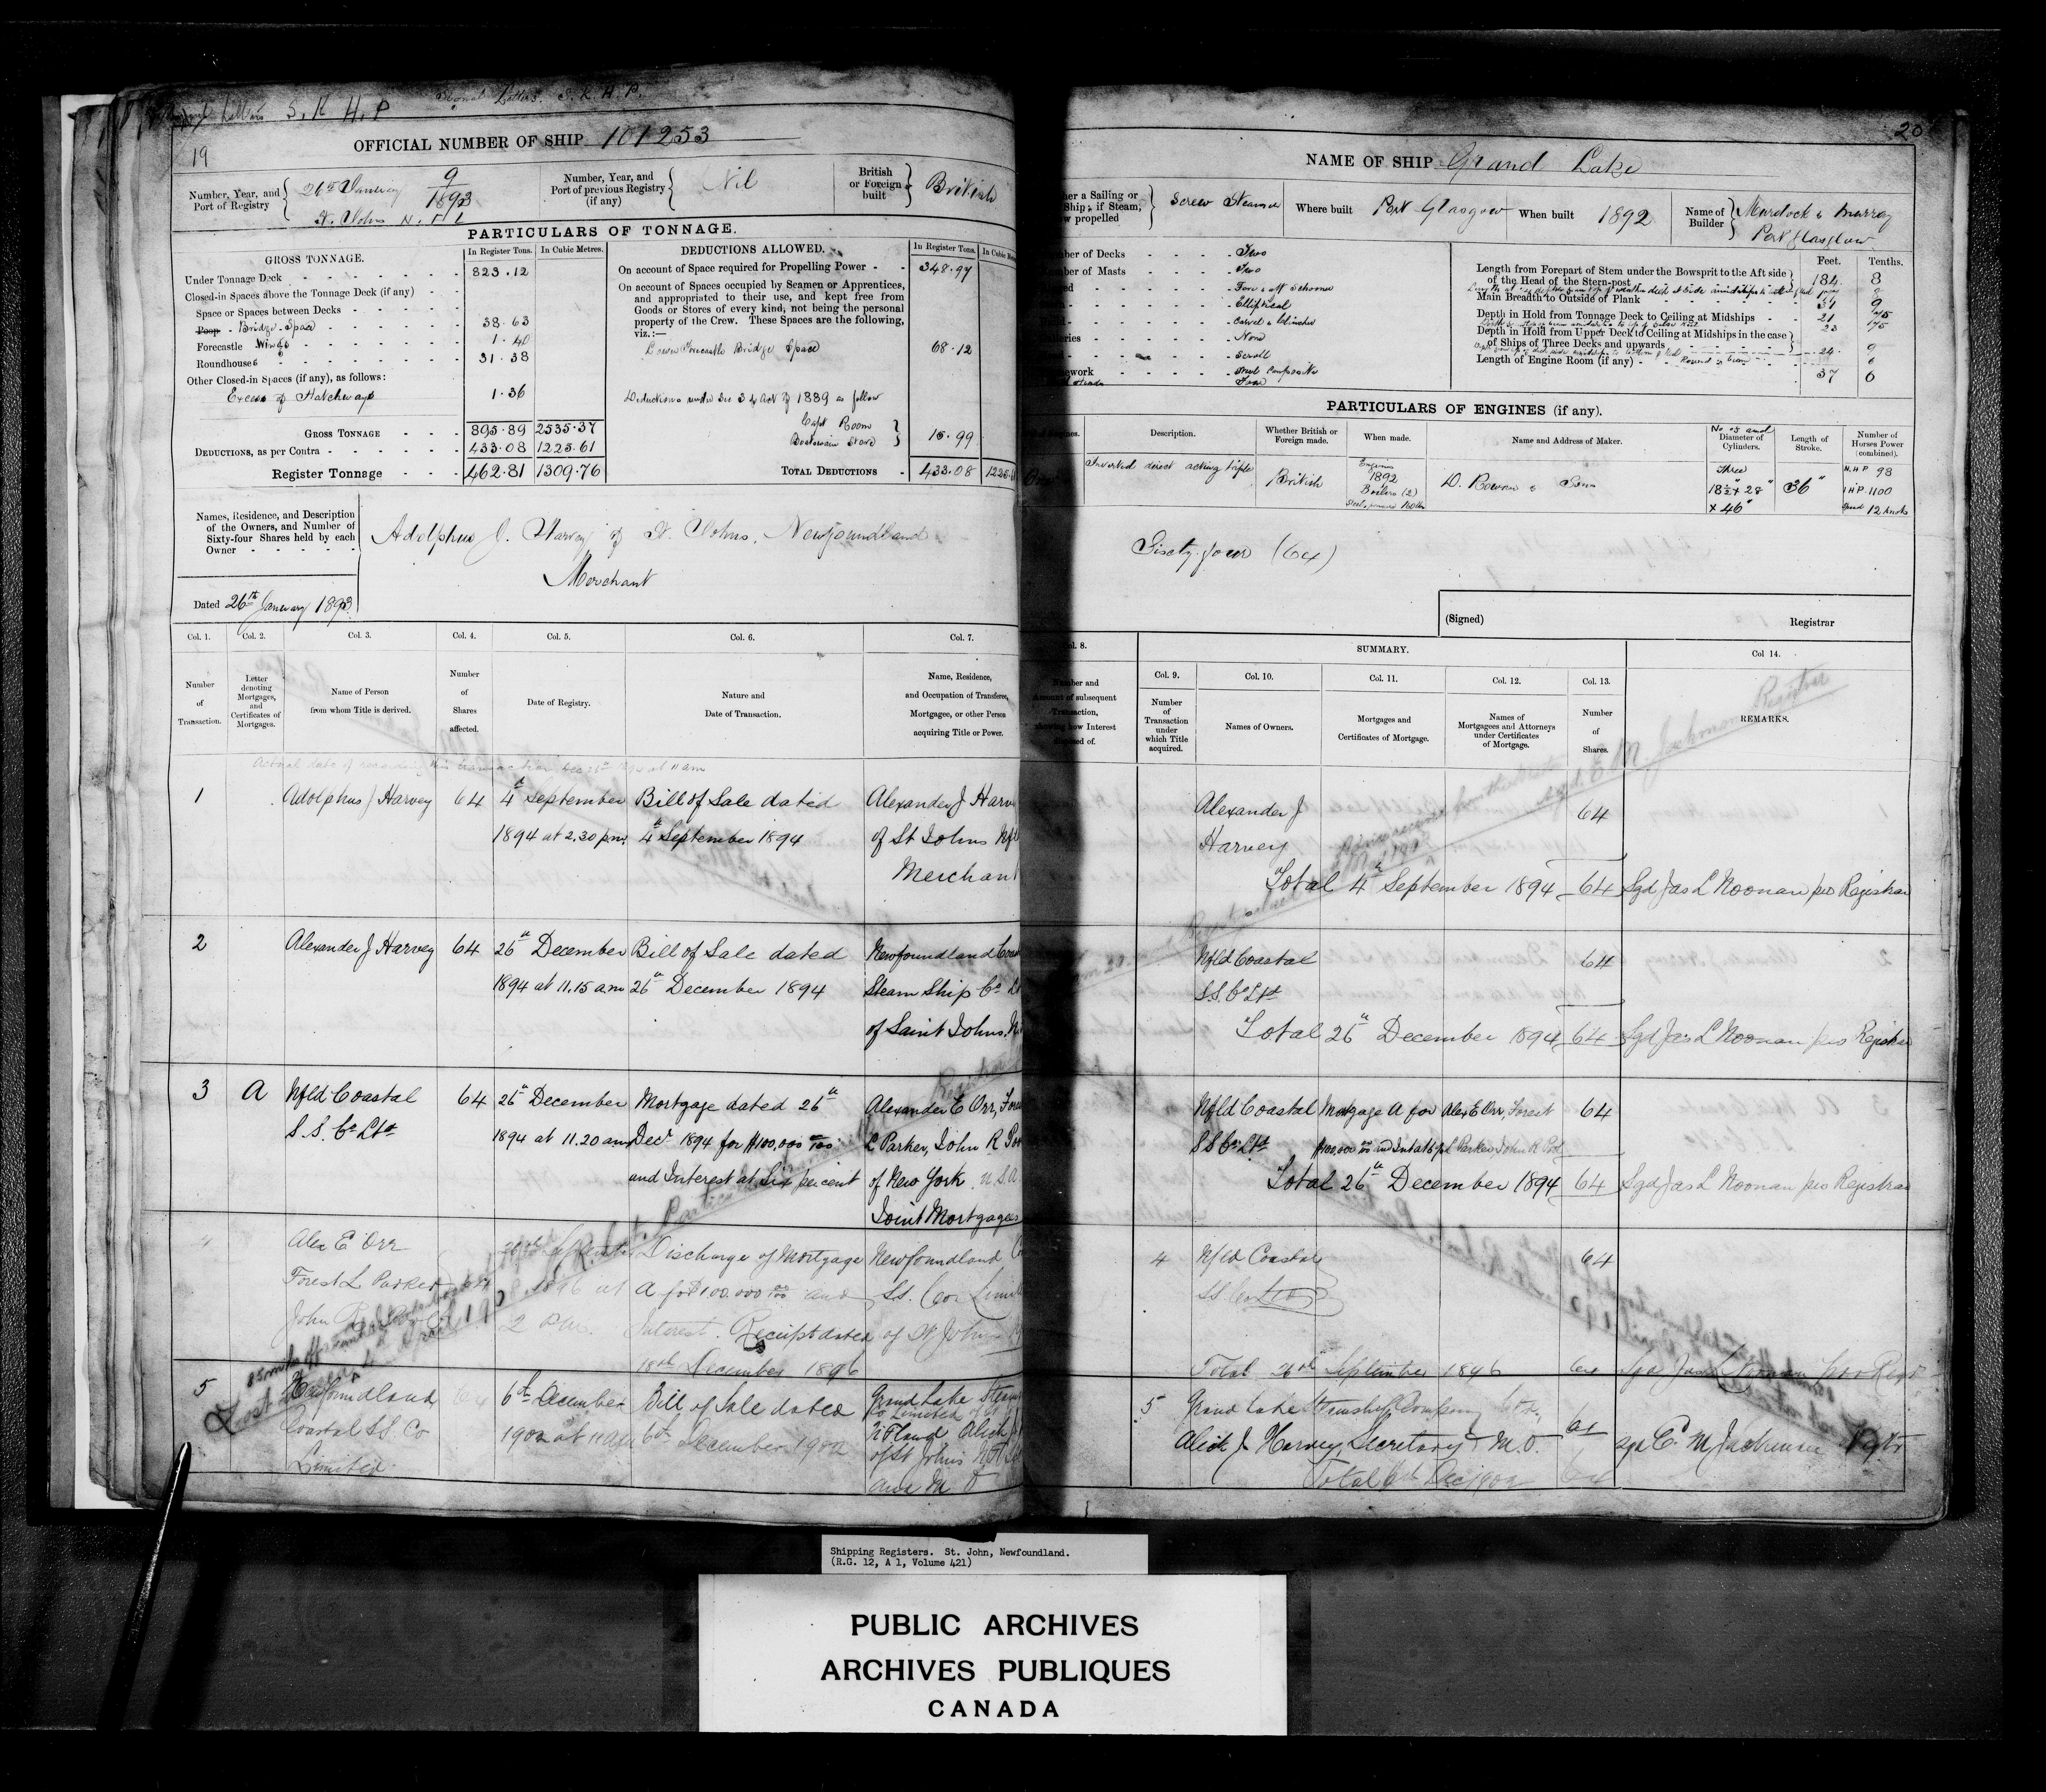 Signal Letters. S. K. H. P.
Letters S. K H. P
19
OFFICIAL NUMBER OF SHIP 101253
Number, Year, and Port of Registry
26th January 9/1893
St. Johns N. F. L
Number, Year, and Port of previous Registry (if any)
Nil
British or Foreign built
British
PARTICULARS OF TONNAGE.
GROSS TONNAGE.
In Register Tons.
In Cubic Metres.
Under Tonnage Deck 823.12
Closed-in Spaces above the Tonnage Deck (if any)
Space or Spaces between Decks
Poop Bridge Space 38.63
Forecastle Wings 1.40
Roundhouses 31.38
Other Closed-in Spaces (if any), as follows:
Excess of Hatchways 1.36
GROSS TONNAGE 895.89 2535.37
DEDUCTIONS, as per Contra 433.08 1225.61
Register Tonnage 462.81 1309.76
DEDUCTIONS ALLOWED.
In Register Tons.
On account of Space required for Propelling Power 348.97
On account of Spaces occupied by Seamen or Apprentices,
and appropriated to their use, and kept free from
Goods or Stores of every kind, not being the personal
property of the Crew. These Spaces are the following,
viz.:—
Lower Forecastle Bridge Space 68.12
Deductions under Sec 3 of Act of 1889 as follow
Capt Room
Boatswain Store 15.99
TOTAL DEDUCTIONS 433.08
Names, Residence, and Description
of the Owners, and Number of
Sixty-four Shares held by each
Owner
Adolphus J. Harvey of St. Johns, Newfoundland
Merchant
Dated 26th January 1893
Col. 1. Col. 2. Col. 3. Col. 4. Col. 5. Col. 6. Col. 7.
Number of Transaction.
Letter denoting Mortgages, and Certificates of Mortgages.
Name of Person from whom Title is derived.
Number of Shares affected.
Date of Registry.
Nature and Date of Transaction.
Name, Residence, and Occupation of Transferee, Mortgagee, or other Person acquiring Title or Power.
Actual date of recording this transaction, Dec 26th 1894 at 11 am
1 Adolphus J Harvey 64 4th September Bill of Sale dated Alexander J Harv
1894 at 2.30 p.m. 4th September 1894 of St Johns Nfl
Merchant
2 Alexander J Harvey 64 26th December Bill of Sale dated Newfoundland Coas
1894 at 11.15 a.m 26th December 1894 Steam Ship Co Lt
of Saint Johns. N
3 A Nfld Coastal 64 26th December Mortgage dated 26th Alexander E Orr, Fores
S. S. Co Ltd 1894 at 11.20 am Decr 1894 for $100,000 00/100 L Parker, John R
and Interest at Six percent of New York U S A
Joint Mortgagees
4 Alex E Orr Discharge of Mortgage Newfoundland
Forest L Parker 64 1896 at A for $100.000 00/100 and SS. Co Limi
John R 2 P.m. Interest. Receipt dated of St Johns
18th December 1896
5 Newfoundland 64 6th December Bill of Sale dated Grand Lake Steam
Coastal SS. Co 1902 at 11 am 6th December 1902 Co Limited
Limited. Nfland Alick J
of St Johns
and M O
20
NAME OF SHIP Grand Lake
her a Sailing or
Ship; if Steam,
w propelled
Screw Steamer
Where built Port Glasgow
When built 1892
Name of Builder
Murdock & Murray
Port Glasgow
ber of Decks Two
mber of Masts Two
Fore & aft Schooner
Elliptical
Carvel & Clincher
leries None
Scroll
work
Length from Forepart of Stem under the Bowsprit to the Aft side
of the Head of the Stern-post
Main Breadth to Outside of Plank
Depth in Hold from Tonnage Deck to Ceiling at Midships
Depth in Hold from Upper Deck to Ceiling at Midships in the case
of Ships of Three Decks and upwards
Length of Engine Room (if any)
Feet. Tenths.
184 8
21 75
23 75
24 9
37 6
PARTICULARS OF ENGINES (if any).
Description.
Whether British or Foreign made.
When made.
Name and Address of Maker.
No of and Diameter of Cylinders.
Length of Stroke.
Number of Horses Power (combined).
Inverted direct acting triple
British
Engines 1892
Boilers (2)
D. Rowan & Son
Three
18½" x 28"
x 46"
36"
N.H.P 98
I H P. 1100
Speed 12 knots
Sixty-four (64)
(Signed) Registrar
SUMMARY.
Col. 9. Col. 10. Col. 11. Col. 12. Col. 13. Col 14.
Number of Transaction under which Title acquired.
Names of Owners.
Mortgages and Certificates of Mortgage.
Names of Mortgagees and Attorneys under Certificates of Mortgage.
Number of Shares.
REMARKS.
Alexander J 64
Harvey
Total 4th September 1894 64 Sgd Jas L Noonan pro Registrar
Nfld Coastal 64
S.S. Co Ltd
Total 26th December 1894 64 Sgd Jas L Noonan pro Registrar
Nfld Coastal Mortgage A for Alex E Orr, Forest 64
S S Co Ltd $100,000 00/100 and Int at 6 pct L Parker, John R
Total 26th December 1894 64 Sgd Jas L Noonan pro Registrar
4 Nfld Coastal 64
SS Co Ltd
Total 26th September 1896 64 Sgd Jas L Noonan pro Regr
5 Grand Lake Steamship Company Ltd. 64
Alick J Harvey Secretary & M.O.
Total 6th Dec 1902 64
Shipping Registers. St. John, Newfoundland.
(R.G. 12, A 1, Volume 421)
PUBLIC ARCHIVES
ARCHIVES PUBLIQUES
CANADA